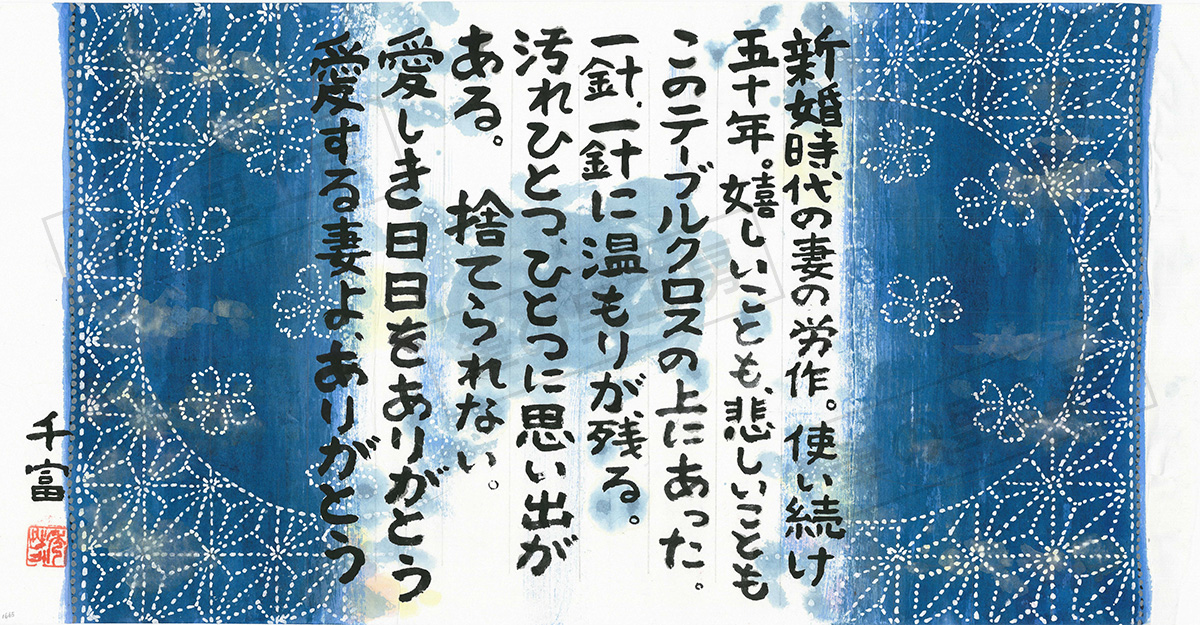 新婚時代の妻の労作。使い続け
五十年。嬉しいことも、悲しいことも
このテーブルクロスの上にあった。
一針、一針に温もりが、残る。
汚れひとつ、ひとつに思い出が
ある。 捨てられない。
愛しき日日をありがとう
愛する妻よ、ありがとう
千富